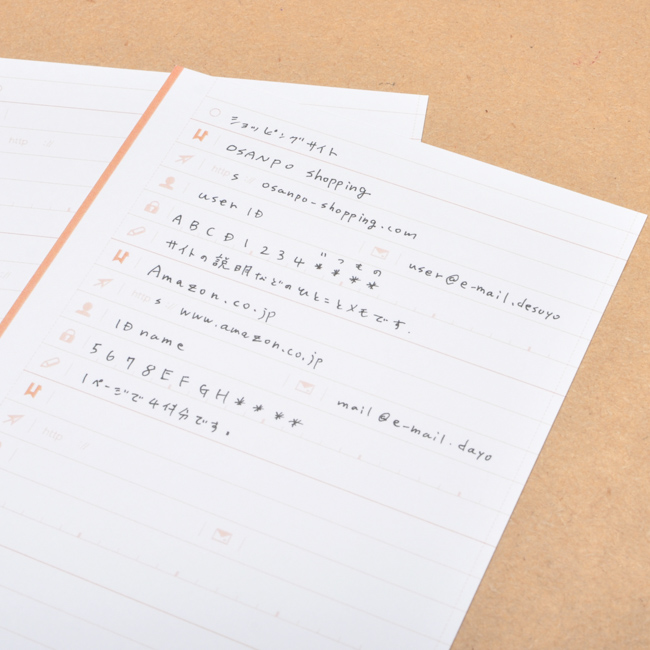 ショッピングサイト
OSANPO shopping
http s // osanpo-shopping.com
user ID user@e-mail.desuyo
ABCD1234****
サイトの説明などのひとことメモです.
Amazon.co.jp
http s // www.amazon.co.jp
ID name mail@e-mail.dayo
5678EFGH****
1ページで4件分です。
http //